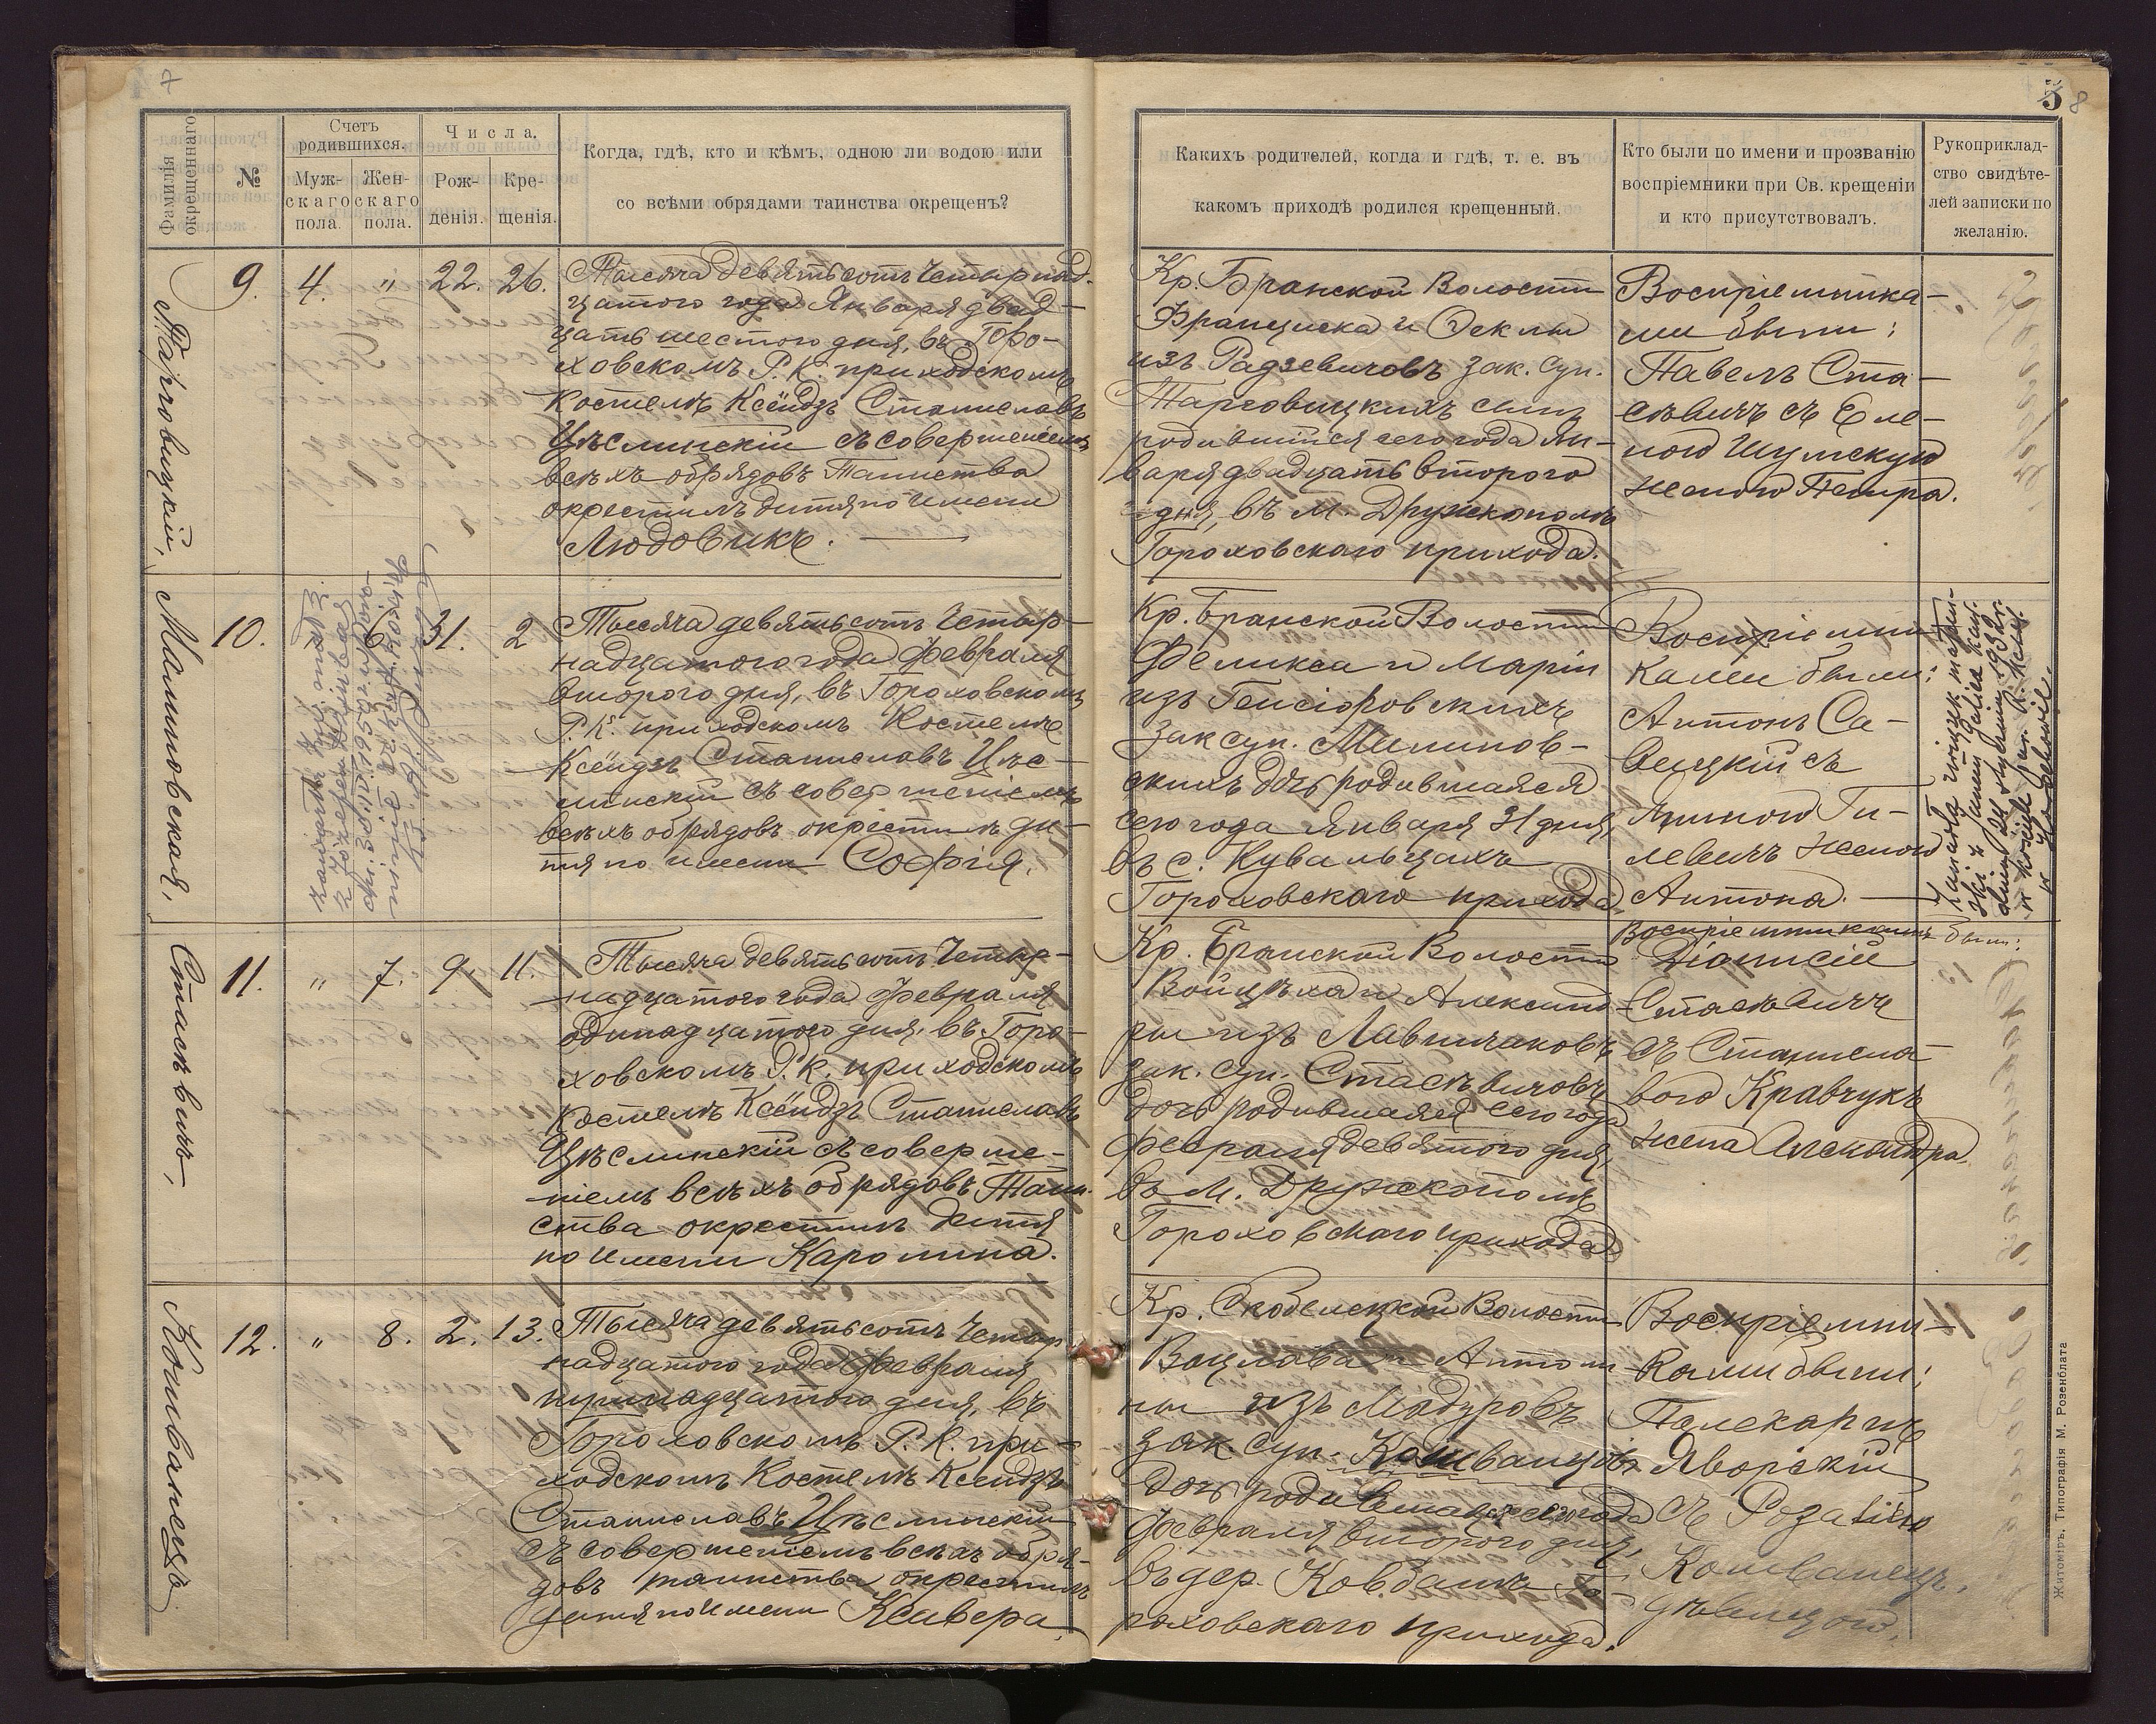 7
Фамилія окрещеннаго
№
Счетъ родившихся.
Муж-
скаго
пола.
Жен-
скаго
пола.
Числа.
Рож-
денія.
Кре-
щенія.
Когда, гдѣ, кто и кѣмъ, одною ли водою или
со всѣми обрядами таинства окрещенъ?
Тарговицкій,
9. 4. „ 22. 26.
Тысяча девятьсотъ четырнад-
цатого года Января двад-
цать шестого дня, въ Горо-
ховскомъ Р. К. приходскомъ
Костелѣ Ксёндзъ Станиславъ
Цѣслинскій съ совершеніемъ
всѣхъ обрядовъ Таинства
окрестилъ дитя по имени
Людовикъ.
Малиновская,
10. „ 6. 31. 2
Тысяча девятьсотъ четыр-
надцатого года февраля
второго дня, въ Гороховскомъ
Р. К. приходскомъ Костелѣ
Ксёндзъ Станиславъ Цѣс-
линскій съ совершеніемъ
всѣхъ обрядовъ окрестилъ ди-
тя по имени Софія.
Стасѣвичъ,
11. „ 7. 9. 11.
Тысяча девятьсотъ четыр-
надцатого года февраля
одинадцатого дня, въ Горо-
ховскомъ Р. К. приходскомъ
Костелѣ Ксёндзъ Станиславъ
Цѣслинскій съ соверше-
ніемъ всѣхъ обрядовъ Таин-
ства окрестилъ дитя
по имени Каролина.
Кошванецъ
12. „ 8. 2. 13.
Тысяча девятьсотъ четыр
надцатого года февраля
тринадцатого дня, въ
Гороховскомъ Р. К. при-
ходскомъ Костелѣ Ксёндзъ
Станиславъ Цѣслинскій
съ совершеніемъ всѣхъ обря-
довъ таинства окрестилъ
дитя по имени Ксавера.
5 8
Какихъ родителей, когда и гдѣ, т. е. въ
какомъ приходѣ родился крещенный.
Кто были по имени и прозванію
воспріемники при Св. крещеніи
и кто присутствовалъ.
Рукоприклад-
ство свидѣте-
лей записки по
желанію.
Кр. Бранской Волости
Франциска и Теклы
изъ Радзевичовъ зак. суп.
Тарговицкихъ сынъ
родившійся сего года Ян-
варя двадцать второго
дня, въ м. Дружкополѣ
Гороховскаго прихода.
Воспріемника-
ми были:
Павелъ Ста-
сѣвичъ съ Еле-
ною Шумскую
женою Петра.
Кр. Бранской Волости
Феликса и Маріи
изъ Генсіоровскихъ
Зак суп. Малинов-
скихъ дочь родившаяся
сего года Января 31 дня,
въ с. Кувальцахъ
Гороховскаго прихода.
Воспріемни
ками были:
Антонъ Са-
вицкій съ
Анною Ги-
левичъ женою
Антона.
Кр. Бранской Волости
Войцѣха и Александ-
ры изъ Лавничаковъ
зак. суп. Стасѣвичовъ
дочь родившаяся сего года
февраля девятого дня,
въ м. Дружкополѣ
Гороховскаго прихода
Воспріемниками были:
Діонисій
Стасѣвичъ
съ Станисла-
вою Кравчукъ
жена Александра.
Кр. Скобелецкой Волости
Вацлава и Антони
ны изъ Мадуровъ
зак. суп. Кошванцовъ
дочь родившаяся сего года
февраля второго дня,
въ дер. Ковбанъ Го-
роховскаго прихода.
Воспріемни-
ками были:
Полекарпъ
Яворскій
съ Розаліею
Кошванецъ,
дѣвицою.
Житоміръ, Типографія М. Розенблата